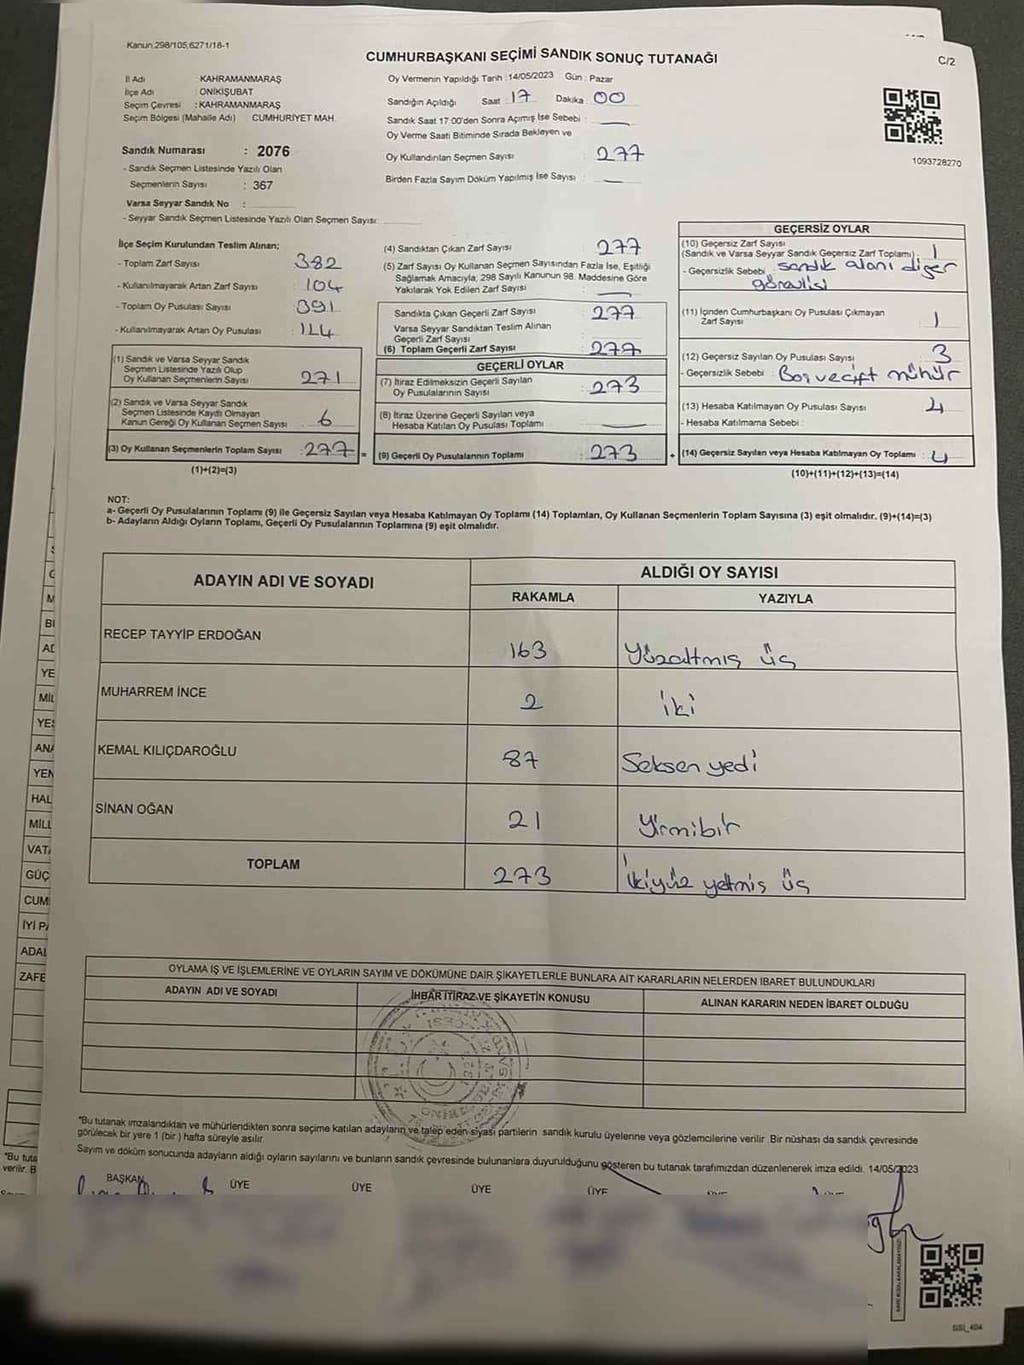 Kanun:298/105,6271/18-1
CUMHURBAŞKANI SEÇİMİ SANDIK SONUÇ TUTANAĞI
C/2
İl Adı : KAHRAMANMARAŞ
İlçe Adı : ONİKİŞUBAT
Seçim Çevresi : KAHRAMANMARAŞ
Seçim Bölgesi (Mahalle Adı) CUMHURİYET MAH.
Oy Vermenin Yapıldığı Tarih :14/05/2023 Gün : Pazar
Sandığın Açıldığı Saat : 17 Dakika : 00
Sandık Saat 17:00'den Sonra Açımış İse Sebebi :
Oy Verme Saati Bitiminde Sırada Bekleyen ve
Oy Kullandırılan Seçmen Sayısı : 277
Birden Fazla Sayım Döküm Yapılmış İse Sayısı :
1093728270
Sandık Numarası : 2076
- Sandık Seçmen Listesinde Yazılı Olan
Seçmenlerin Sayısı : 367
Varsa Seyyar Sandık No :
- Seyyar Sandık Seçmen Listesinde Yazılı Olan Seçmen Sayısı:
İlçe Seçim Kurulundan Teslim Alınan;
- Toplam Zarf Sayısı : 382
- Kullanılmayarak Artan Zarf Sayısı : 104
- Toplam Oy Pusulası Sayısı : 391
- Kullanılmayarak Artan Oy Pusulası : 114
(1) Sandık ve Varsa Seyyar Sandık
Seçmen Listesinde Yazılı Olup
Oy Kullanan Seçmenlerin Sayısı : 271
(2) Sandık ve Varsa Seyyar Sandık
Seçmen Listesinde Kayıtlı Olmayan
Kanun Gereği Oy Kullanan Seçmen Sayısı : 6
(3) Oy Kullanan Seçmenlerin Toplam Sayısı : 277 =
(1)+(2)=(3)
(4) Sandıktan Çıkan Zarf Sayısı : 277
(5) Zarf Sayısı Oy Kullanan Seçmen Sayısından Fazla İse, Eşitliği
Sağlamak Amacıyla; 298 Sayılı Kanunun 98. Maddesine Göre
Yakılarak Yok Edilen Zarf Sayısı :
Sandıkta Çıkan Geçerli Zarf Sayısı : 277
Varsa Seyyar Sandıktan Teslim Alınan
Geçerli Zarf Sayısı :
(6) Toplam Geçerli Zarf Sayısı : 277
GEÇERLİ OYLAR
(7) İtiraz Edilmeksizin Geçerli Sayılan
Oy Pusulalarının Sayısı : 273
(8) İtiraz Üzerine Geçerli Sayılan veya
Hesaba Katılan Oy Pusulası Toplamı :
(9) Geçerli Oy Pusulalarının Toplamı : 273 +
GEÇERSİZ OYLAR
(10) Geçersiz Zarf Sayısı
(Sandık ve Varsa Seyyar Sandık Geçersiz Zarf Toplamı) : 1
- Geçersizlik Sebebi : sandık alanı diğer
görevlisi
(11) İçinden Cumhurbaşkanı Oy Pusulası Çıkmayan
Zarf Sayısı : 1
(12) Geçersiz Sayılan Oy Pusulası Sayısı : 3
- Geçersizlik Sebebi : Boş ve çift mühür
(13) Hesaba Katılmayan Oy Pusulası Sayısı : 4
- Hesaba Katılmama Sebebi :
(14) Geçersiz Sayılan veya Hesaba Katılmayan Oy Toplamı : 4
(10)+(11)+(12)+(13)=(14)
NOT:
a- Geçerli Oy Pusulalarının Toplamı (9) ile Geçersiz Sayılan veya Hesaba Katılmayan Oy Toplamı (14) Toplamları, Oy Kullanan Seçmenlerin Toplam Sayısına (3) eşit olmalıdır. (9)+(14)=(3)
b- Adayların Aldığı Oyların Toplamı, Geçerli Oy Pusulalarının Toplamına (9) eşit olmalıdır.
ADAYIN ADI VE SOYADI ALDIĞI OY SAYISI
RAKAMLA YAZIYLA
RECEP TAYYİP ERDOĞAN 163 Yüzaltmış üç
MUHARREM İNCE 2 iki
KEMAL KILIÇDAROĞLU 87 Seksen yedi
SİNAN OĞAN 21 Yirmibir
TOPLAM 273 İkiyüz yetmiş üç
OYLAMA İŞ VE İŞLEMLERİNE VE OYLARIN SAYIM VE DÖKÜMÜNE DAİR ŞİKAYETLERLE BUNLARA AİT KARARLARIN NELERDEN İBARET BULUNDUKLARI
ADAYIN ADI VE SOYADI İHBAR İTİRAZ VE ŞİKAYETİN KONUSU ALINAN KARARIN NEDEN İBARET OLDUĞU
*Bu tutanak imzalandıktan ve mühürlendikten sonra seçime katılan adayların ve talep eden siyasi partilerin sandık kurulu üyelerine veya gözlemcilerine verilir. Bir nüshası da sandık çevresinde
görülecek bir yere 1 (bir ) hafta süreyle asılır.
Sayım ve döküm sonucunda adayların aldığı oyların sayılarını ve bunların sandık çevresinde bulunanlara duyurulduğunu gösteren bu tutanak tarafımızdan düzenlenerek imza edildi. 14/05/2023
BAŞKAN ÜYE ÜYE ÜYE ÜYE
YE
MİL
YE
ANA
YEN
HAL
MİLL
VAT
GÜÇ
CUM
İYİ PA
ADAL
ZAFE
*Bu tuta
verilir. B